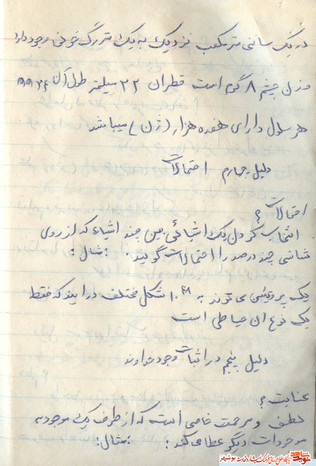 در یک سانتی متر مکعب نزدیک به یک متر رگ خونی وجود دارد
وزن چشم ۸ گرم است قطر آن ۲۲ میلیمتر طول آن
هر سلول دارای هفده هزار (ژن) میباشد
دلیل چهارم احتمالات
احتمالات ؟
انتخاب کردن یک اشیائی بین چند اشیاء که از روی
شانسی چند درصد را احتمالات گویند. مثال:
یک پروتئین می تواند به شکل مختلف درآیند که فقط
یک نوع آن حیاطی است
دلیل پنجم در اثبات وجود خداوند
عنایت ؟
لطف و مرحمت خاصی است که از طرف یک موجود به
موجودات دیگر عطا می کند: مثال: